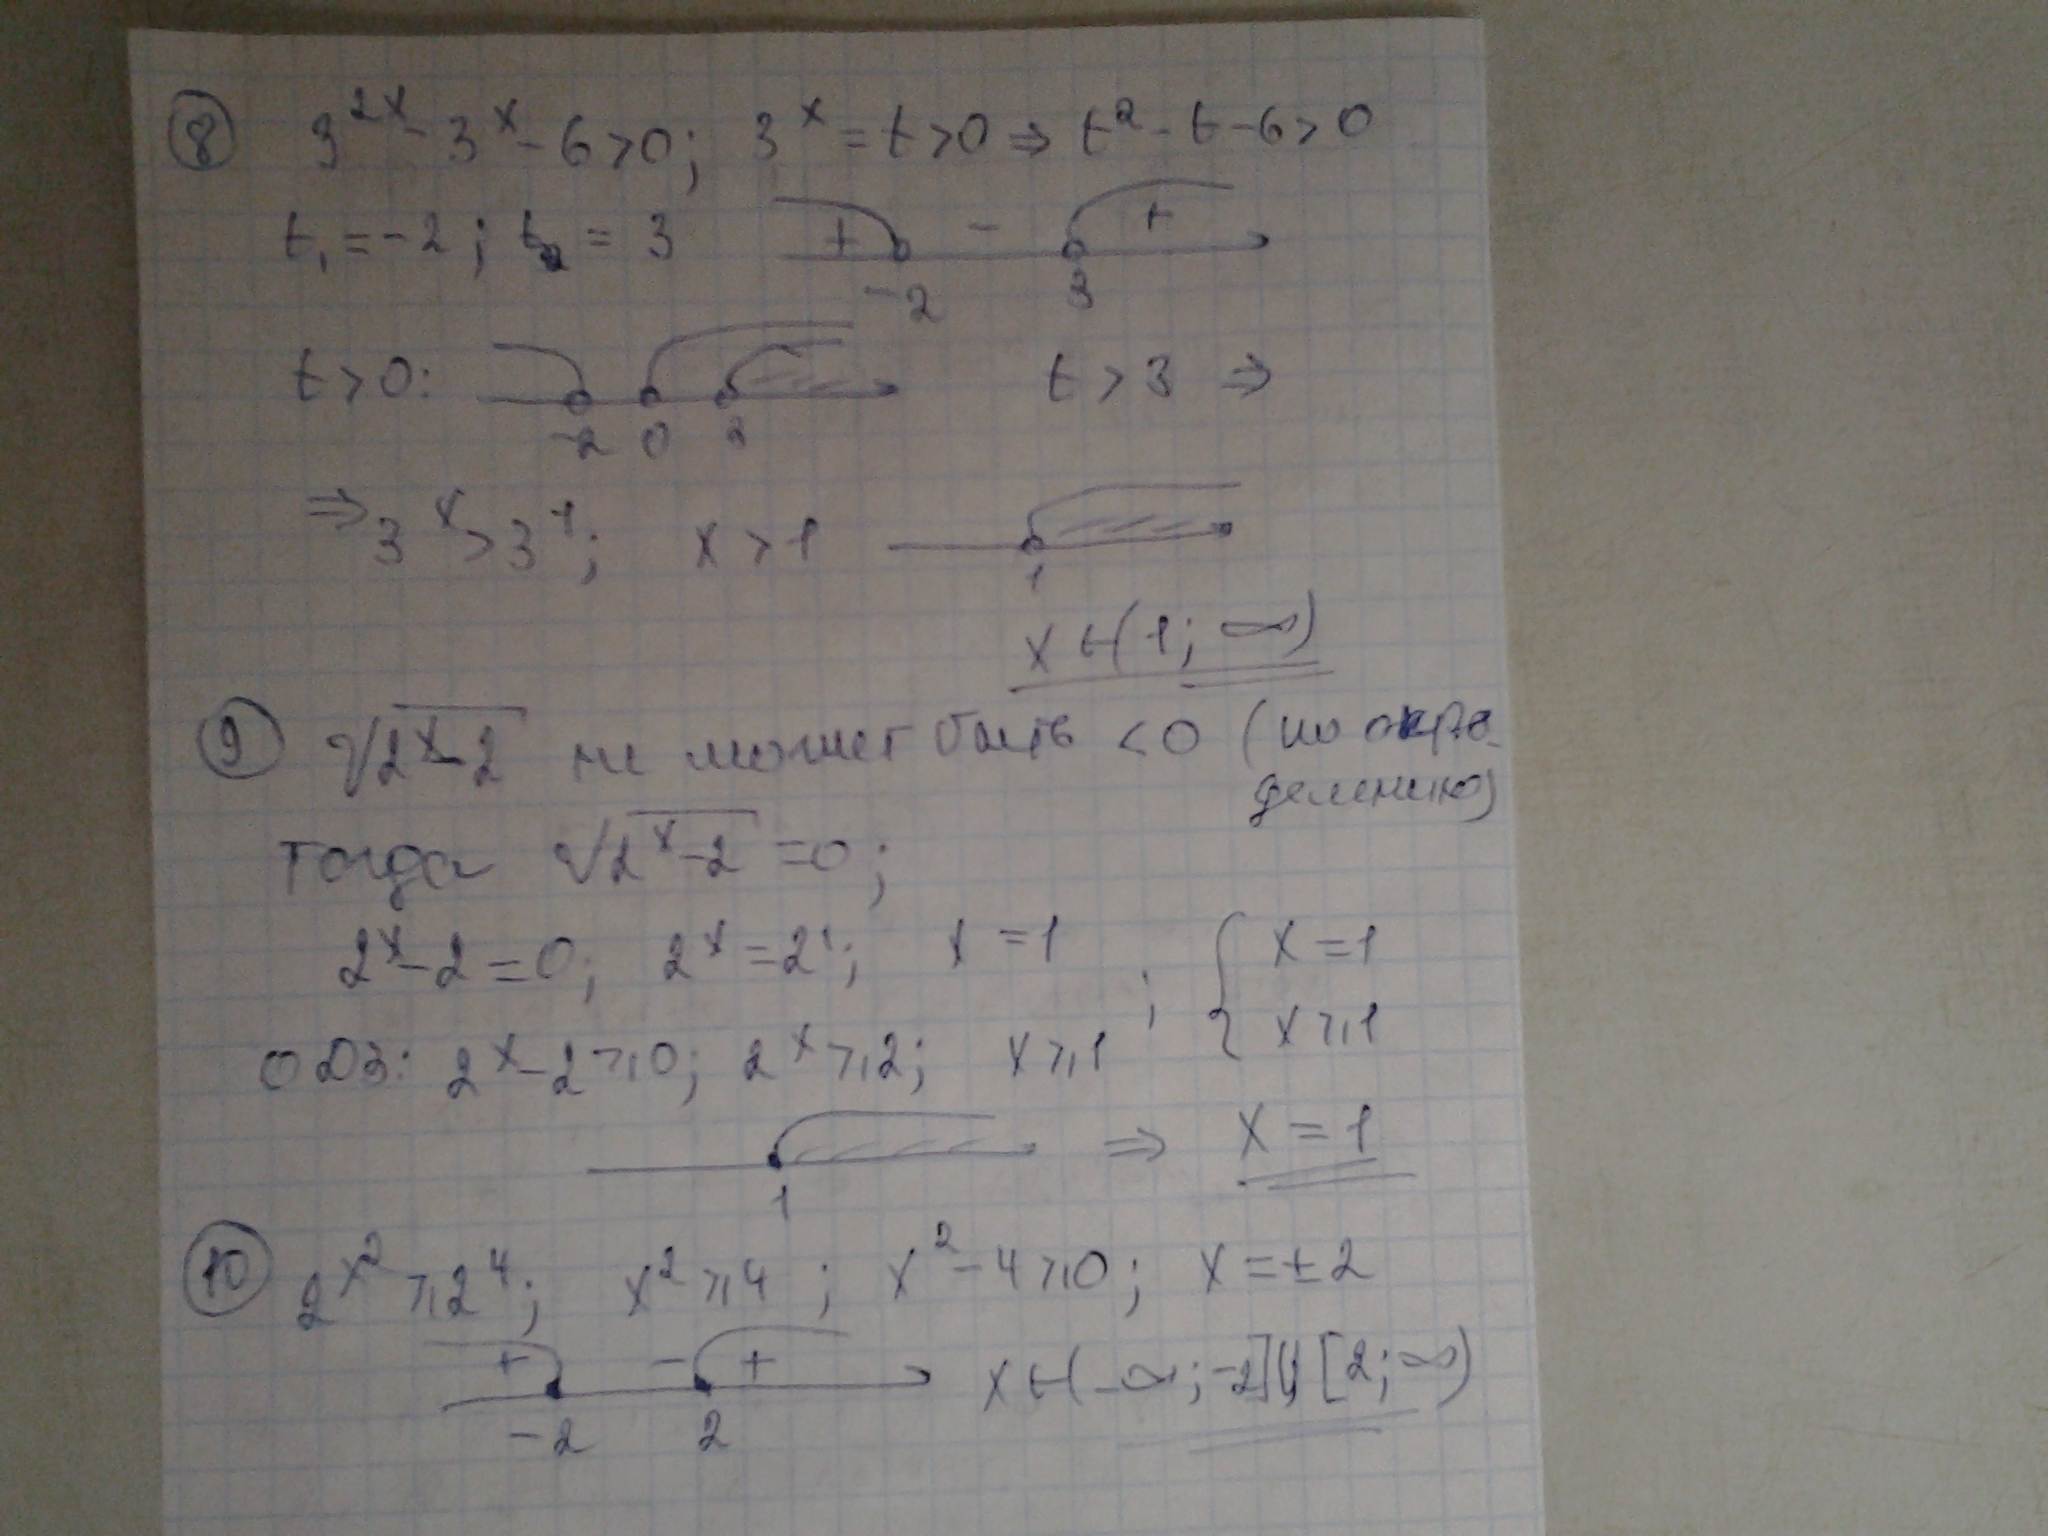 8 3^{2x} - 3^x - 6 > 0; 3^x = t > 0 ⇒ t² - t - 6 > 0
t₁ = -2; t₂ = 3 + - + -2 3
t > 0: -2 0 3 t > 3 ⇒
⇒ 3^x > 3^1; x > 1 1
x ∈ (1; ∞)
9 √(2^x - 2) не может быть < 0 (по опре-
делению)
тогда √(2^x - 2) = 0;
2^x - 2 = 0; 2^x = 2^1; x = 1 ; { x = 1
ОДЗ: 2^x - 2 ⩾ 0; 2^x ⩾ 2; x ⩾ 1 x ⩾ 1
1 ⇒ x = 1
10 2^{x²} ⩾ 2^4; x² ⩾ 4; x² - 4 ⩾ 0; x = ±2
+ - + -2 2 x ∈ (-∞; -2] ∪ [2; ∞)